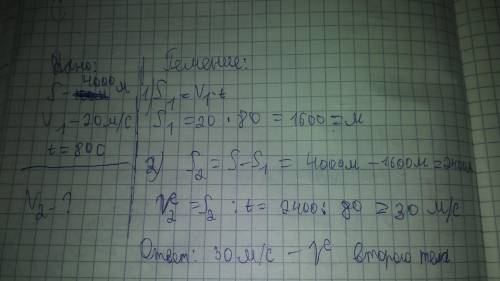 Дано:
S - 4000м
V1 - 20м/с
t = 80с
V2 - ?
Решение:
1) S1 = V1 · t
S1 = 20 · 80 = 1600 = м
2) S2 = S - S1 = 4000м - 1600м = 2400м
V2 = S2 : t = 2400 : 80 = 30 м/с
Ответ: 30 м/с - V второго тела